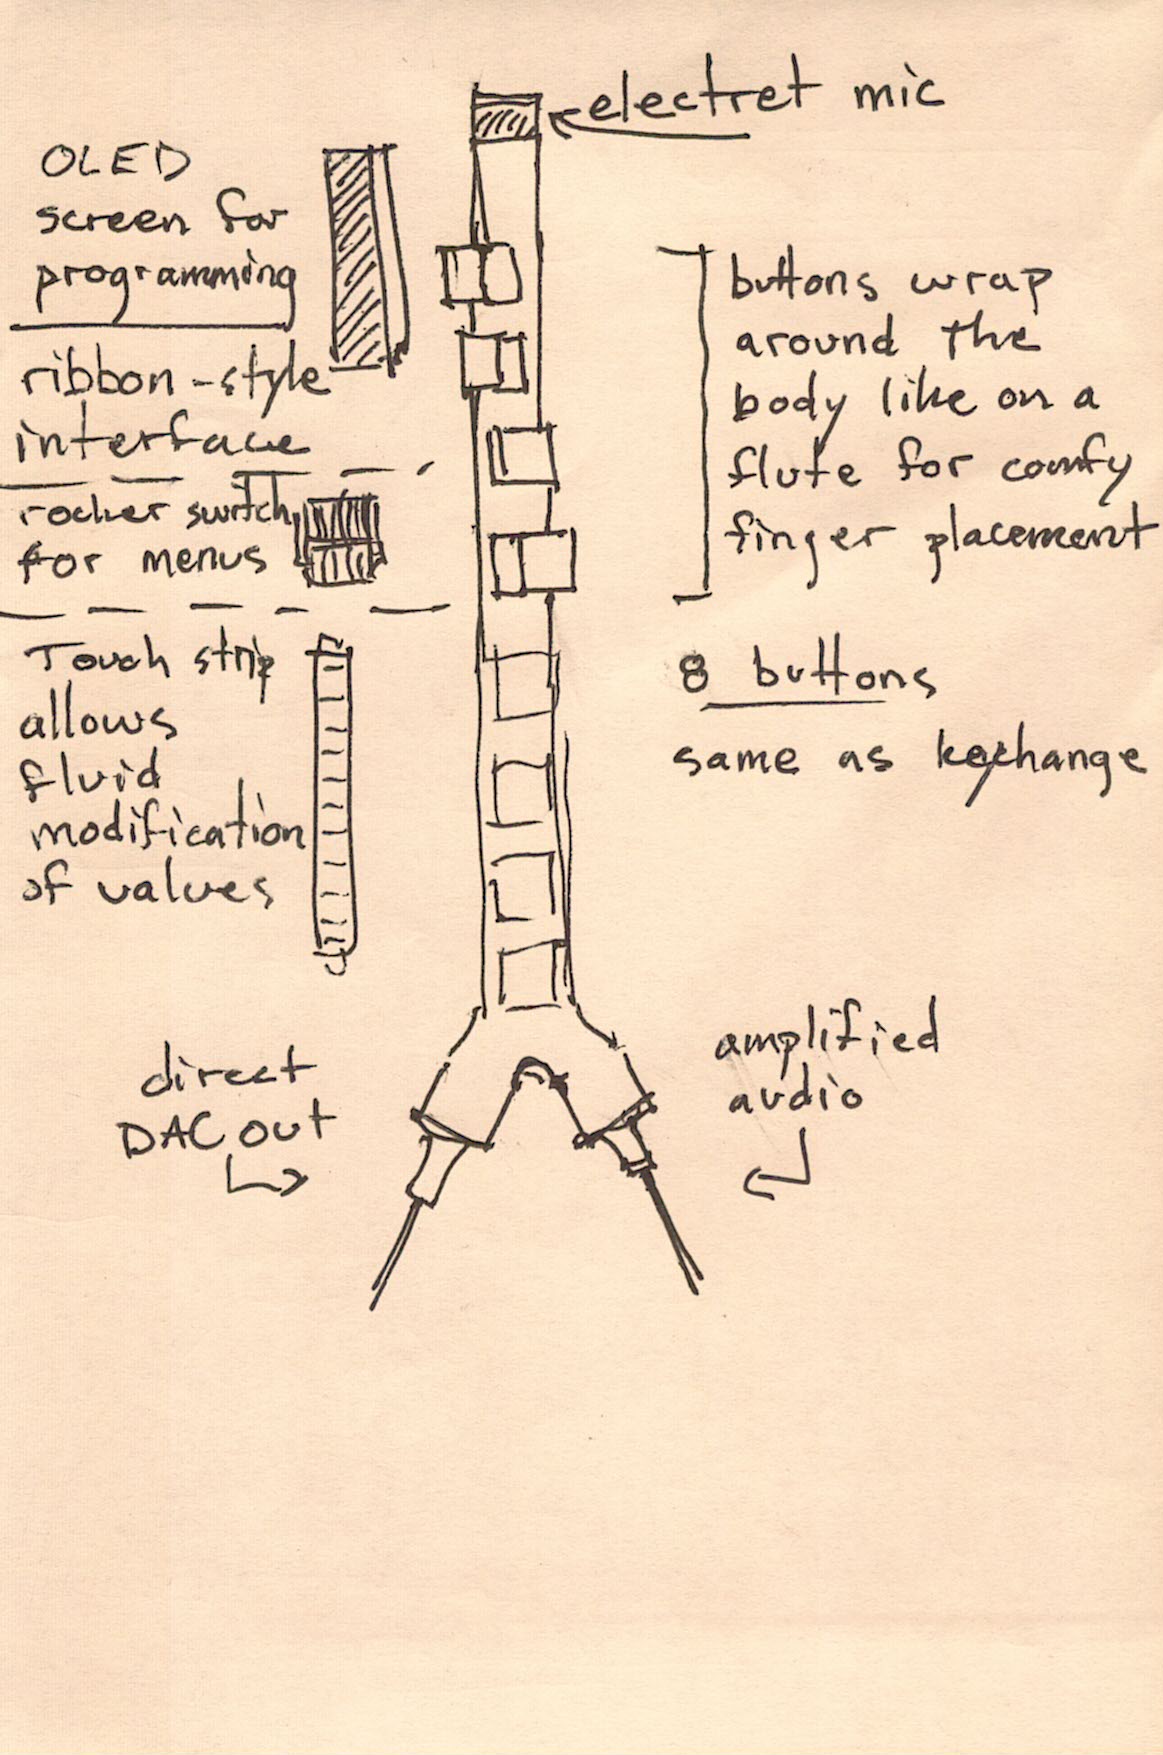 electret mic
OLED
screen for
programming
ribbon-style
interface
rocker switch
for menus
Touch strip
allows
fluid
modification
of values
buttons wrap
around the
body like on a
flute for comfy
finger placement
8 buttons
same as keychange
direct
DAC out
amplified
audio